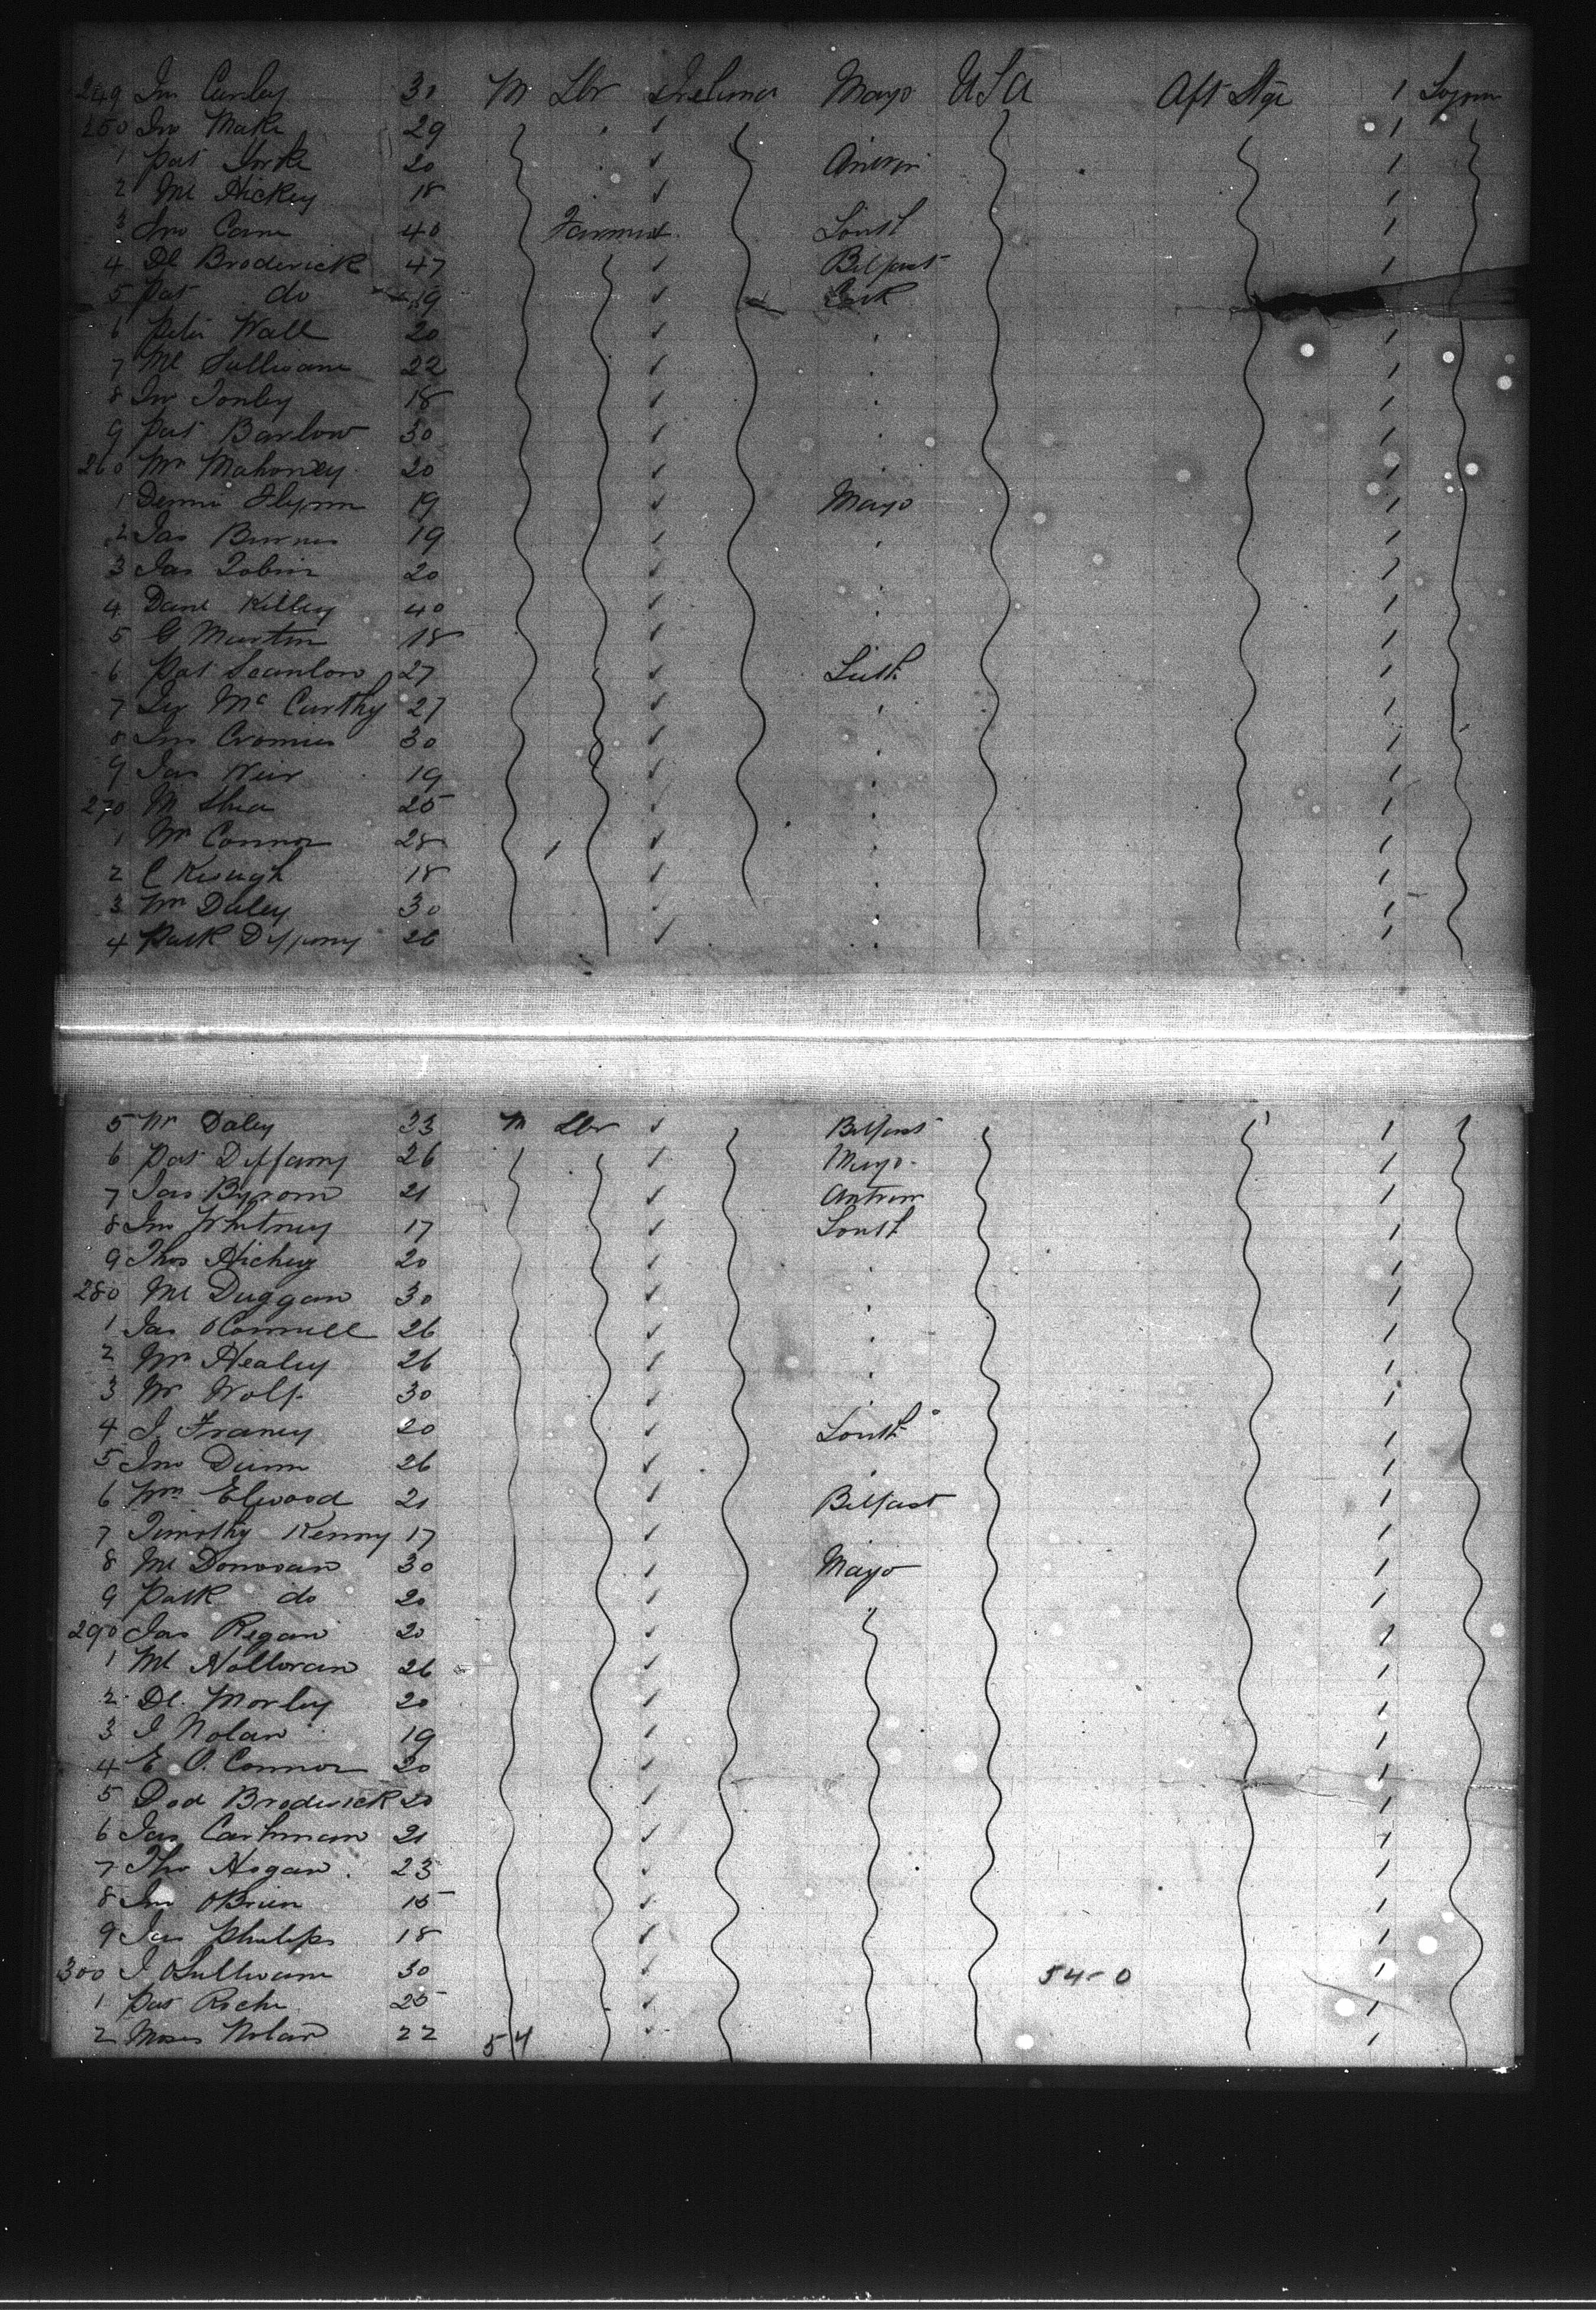 249 Jno Curley 30 M Lbr Ireland Mayo USA Aft Stge 1 Sojrn
250 Jno 29 1
1 Pat 20 Antrim 1
2 Ml Hickey 18 1
3 Jno Cane 40 Farmer Louth 1
4 Dl Broderick 47 Belfast 1
5 Pat do 19 Cork
6 Peter Wall 20 " 1
7 Ml Sullivan 22 " 1
8 Jno 18 " 1
9 Pat Barlow 30 " 1
260 Wm Mahoney 20 " 1
1 Dennis Flynn 19 Mayo 1
2 Jas Burns 19 " 1
3 Jas Tobin 20 " 1
4 Danl Kelley 40 " 1
5 G Martin 18 1
6 Pat Scanlon 27 1
7 Jno McCarthy 27 " 1
8 Jno 30 " 1
9 Jas Weir 19 " 1
270 M Shea 25 " 1
1 Wm Connor 28 " 1
2 C Keough 18 " 1
3 Wm Daley 30 " 1
4 Patk 26 " 1
5 Wm Daley 33 M Lbr Belfast 1
6 Pat 26 Mayo 1
7 Jas Byrom 21 Antrim 1
8 Jno Whitney 17 Louth 1
9 Thos Hickey 20 " 1
280 Ml Duggan 30 " 1
1 Jas OConnell 26 " 1
2 Wm Healey 26 " 1
3 Wm Wolf 30 " 1
4 J. Franey 20 Louth 1
5 Jno Dunn 26 " 1
6 Wm Elwood 21 Belfast 1
7 Timothy Kenny 17 1
8 Ml Donovan 30 Mayo 1
9 Patk do 20 1
290 Jas Regan 20 " 1
1 Ml Holloran 26 1
2 Dl. Morley 20 1
3 J Nolan 19 1
4 E O. Connor 20 1
5 Dod Broderick 20 1
6 Jas Cashman 21 1
7 Tho Hogan 23 1
8 Jno OBrien 15 1
9 Jas Philips 18 1
300 J OSullivan 30 54-0 1
1 Pat Roche 25 1
2 Moses Nolan 22 54 1